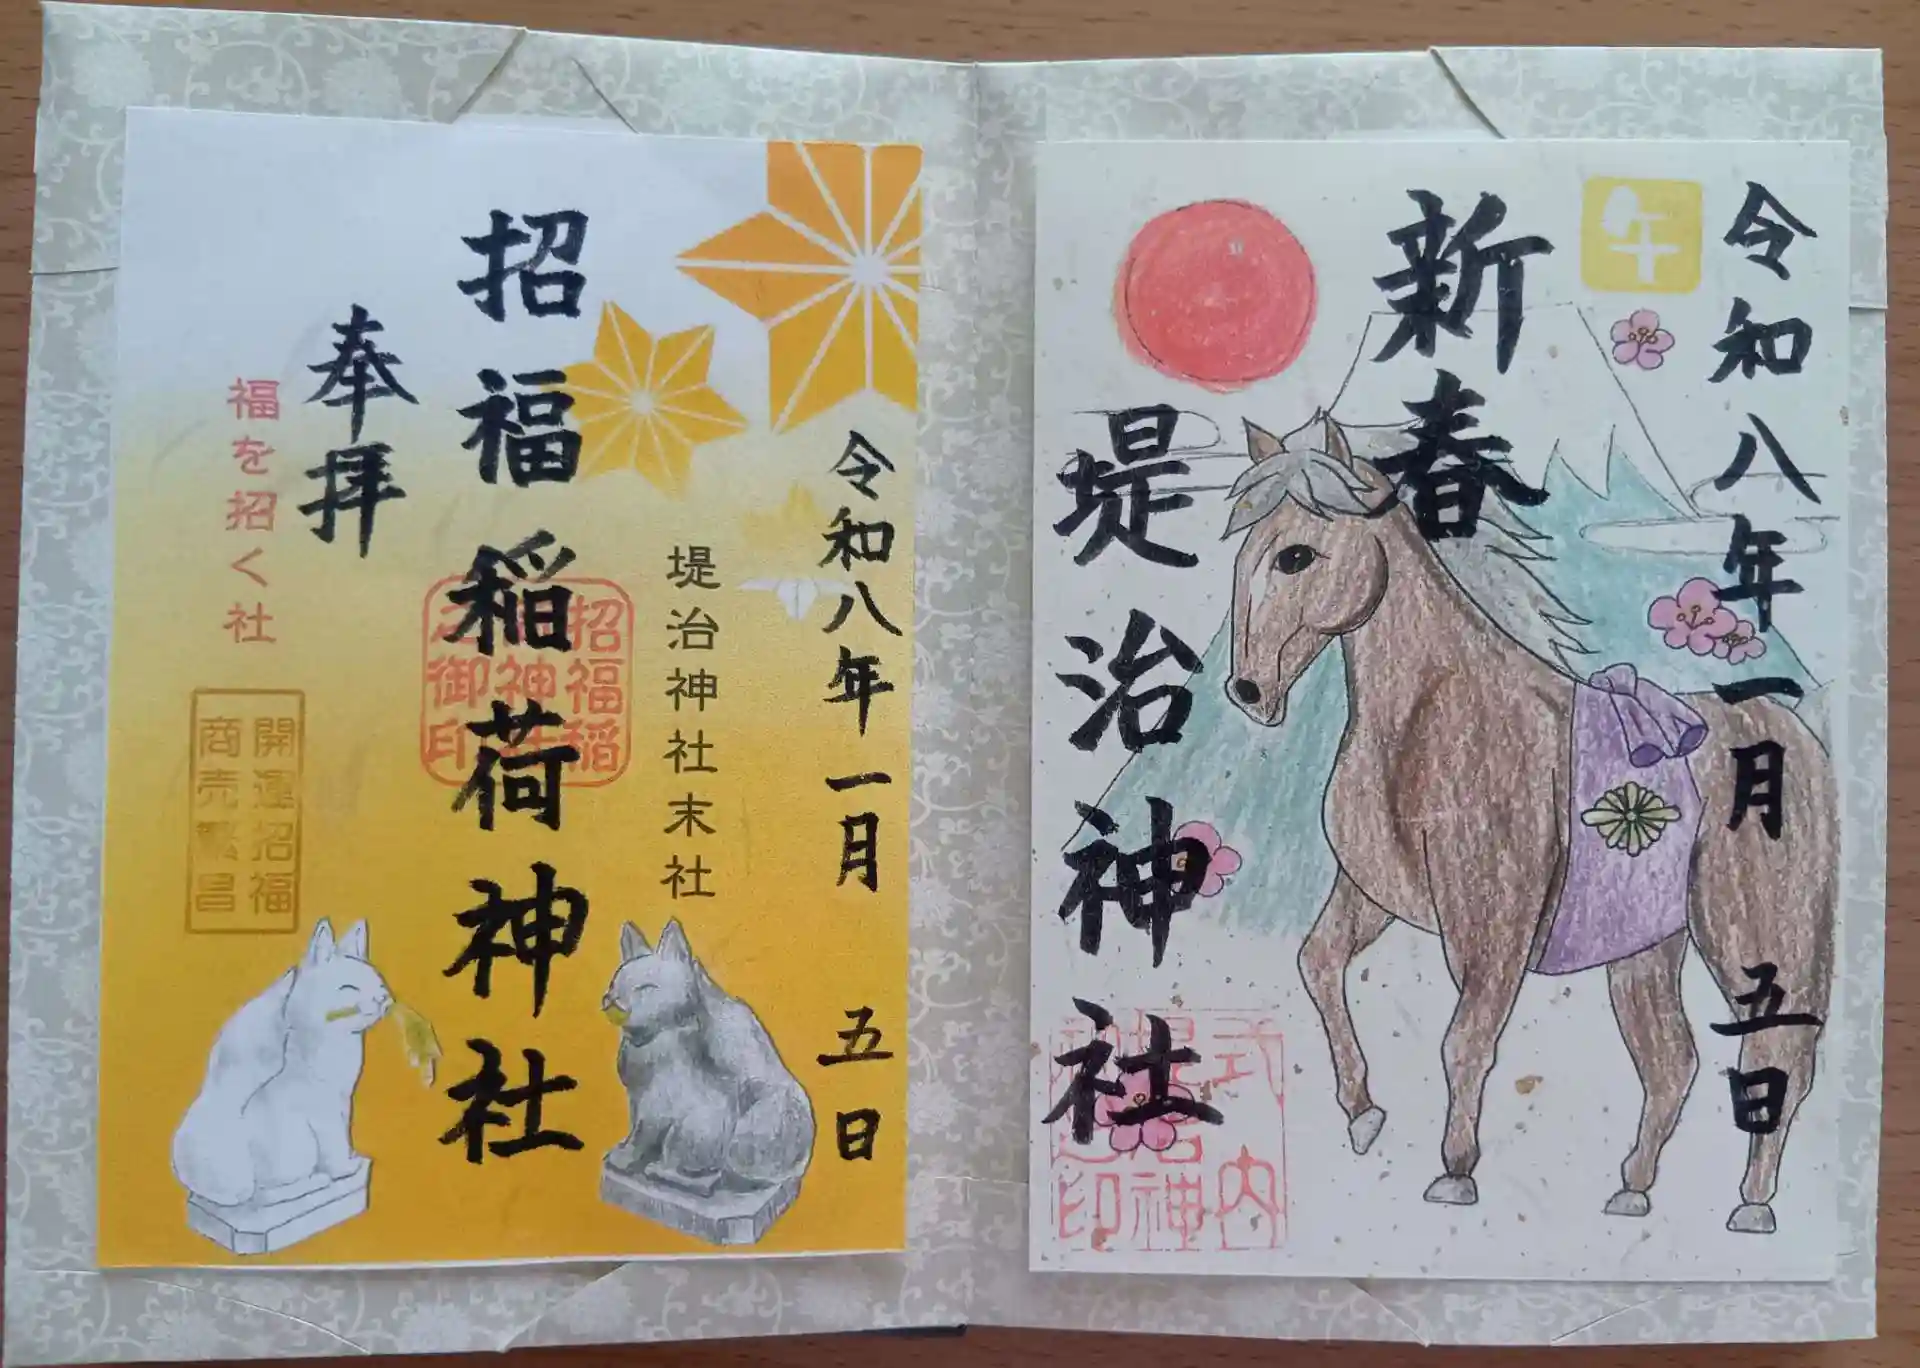 令和八年一月五日
午
新春
堤治神社
式内
堤治神
印
令和八年一月 五日
堤治神社末社
招福稲荷神社
招福稲
神
之御印
奉拝
福を招く社
開運招福
商売繁昌